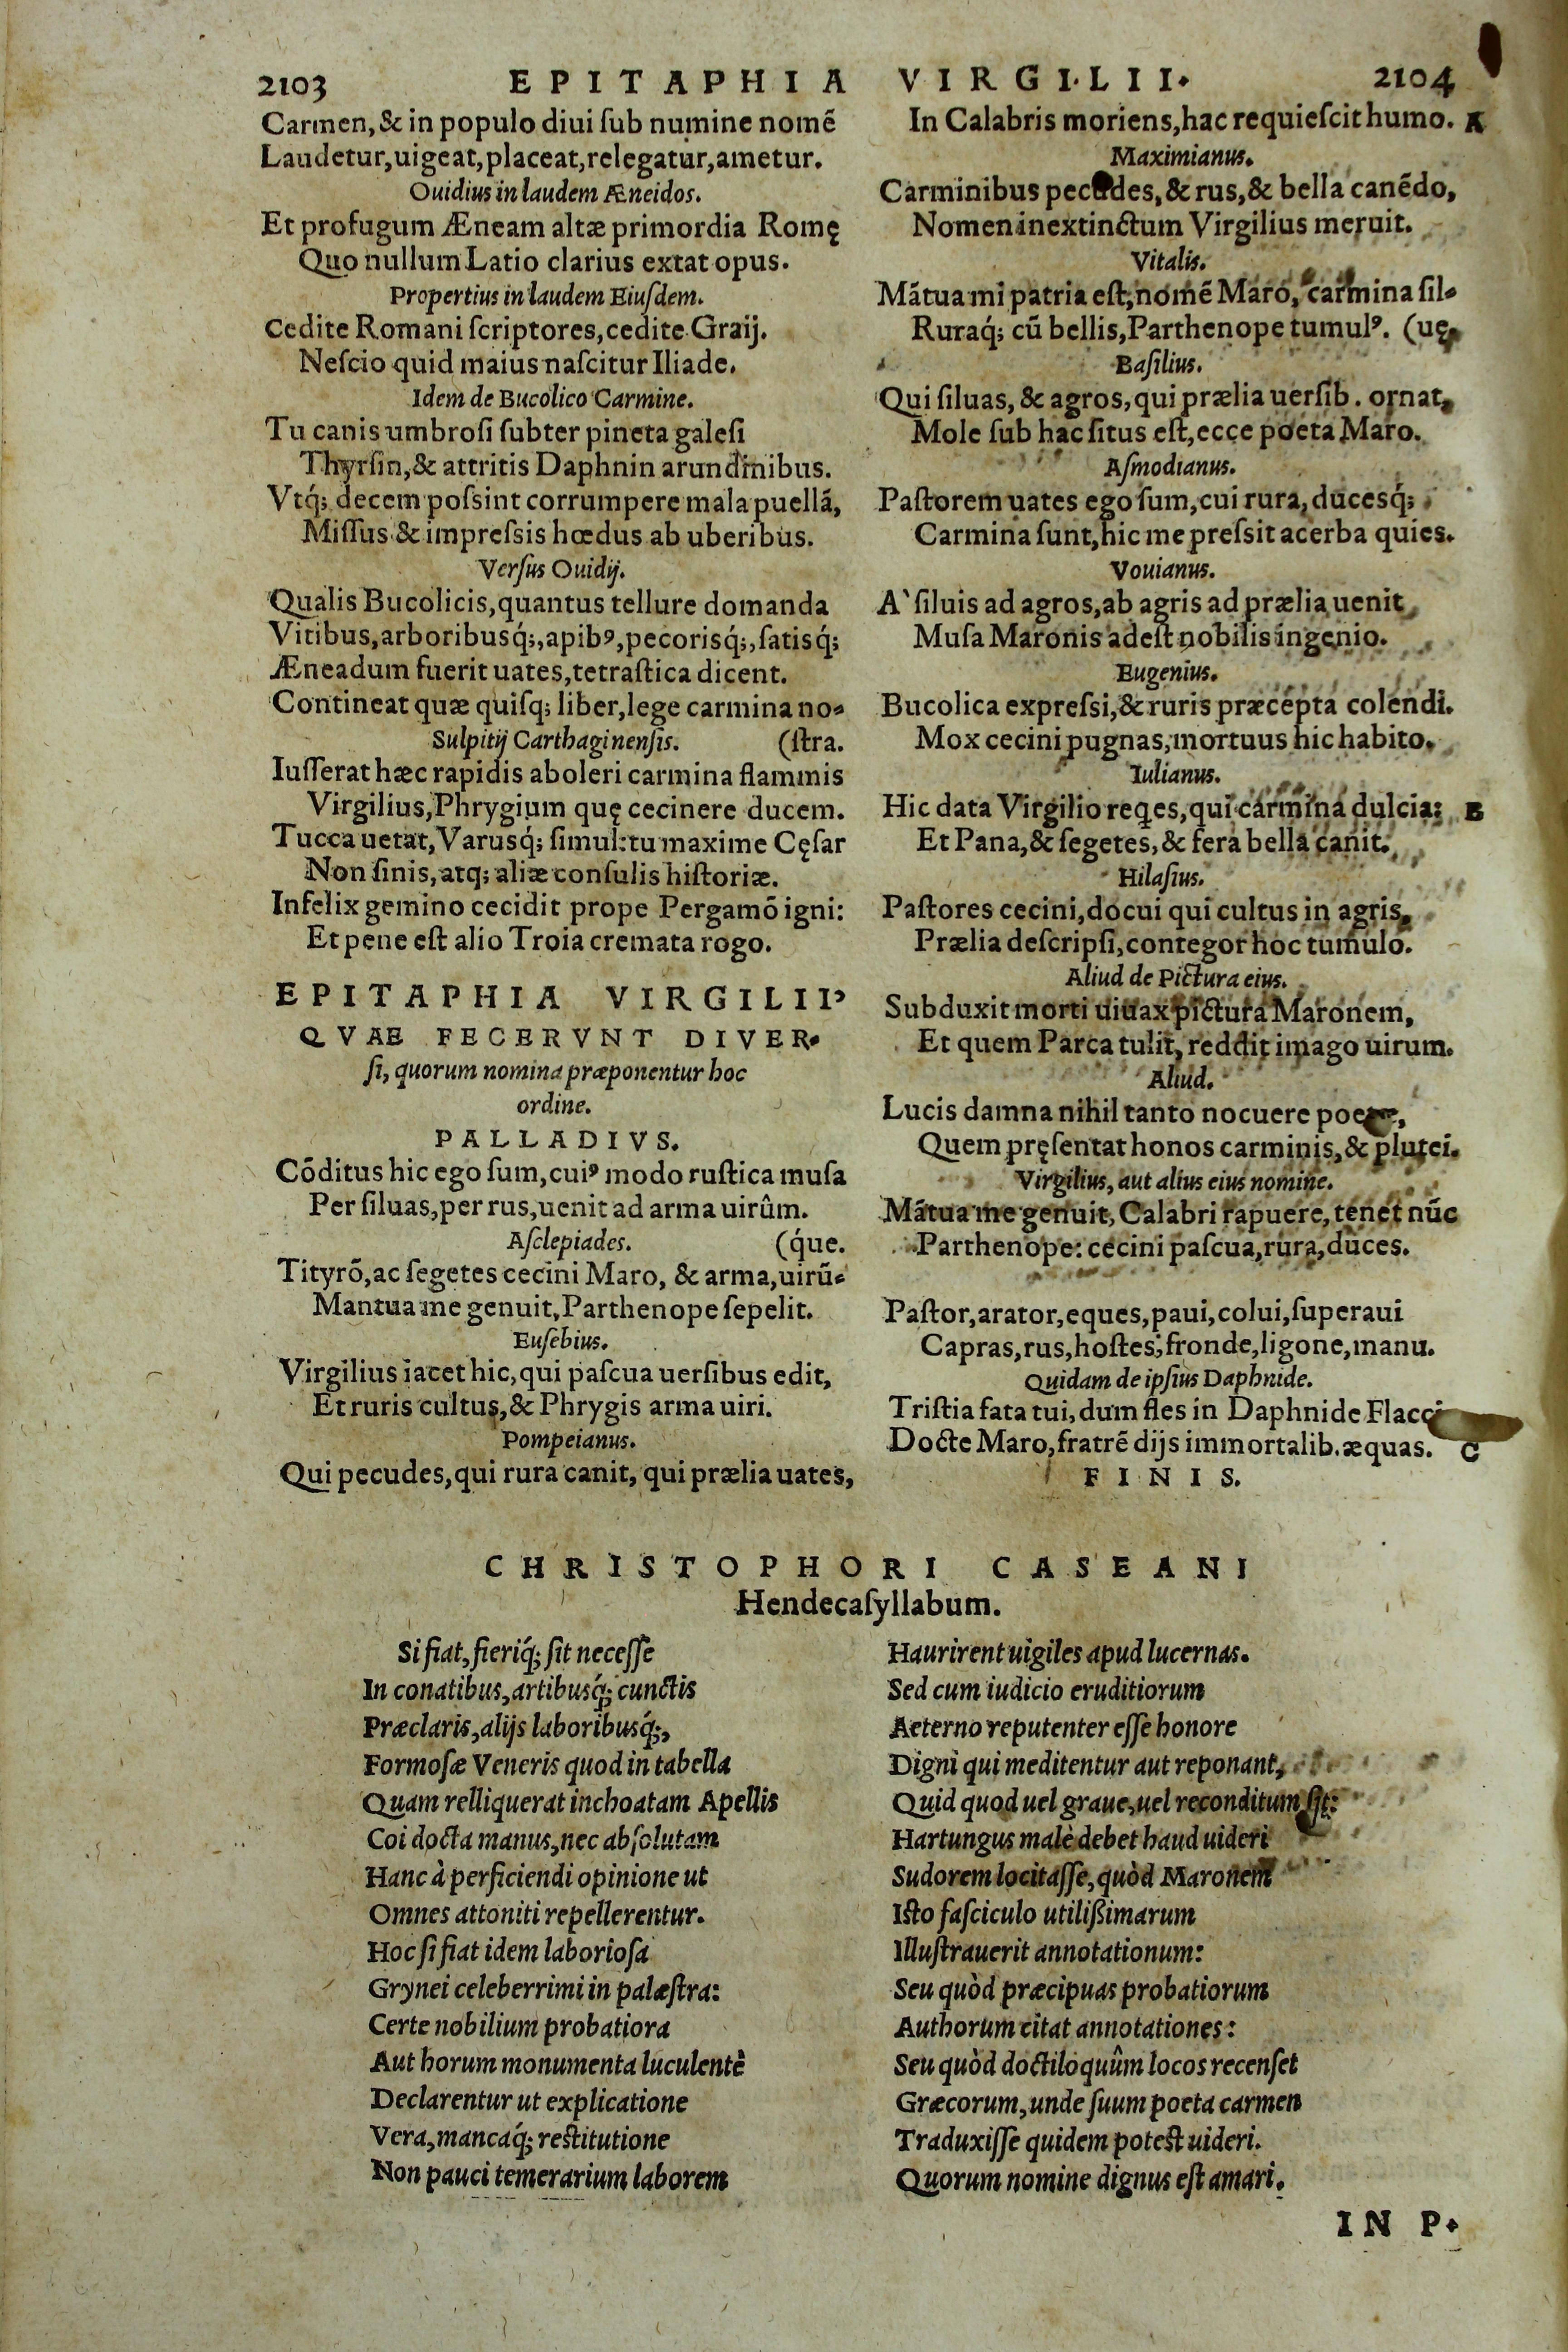 2103 EPITAPHIA VIRGILII. 2104
Carmen,& in populo diui ſub numine nomẽ
Laudetur,uigeat,placeat,relegatur,ametur.
Ouidius in laudem Æneidos.
Et profugum Æneam altæ primordia Romę
Quo nullum Latio clarius extat opus.
Propertius in laudem Eiuſdem.
Cedite Romani ſcriptores,cedite Graij.
Neſcio quid maius naſcitur Iliade.
Idem de Bucolico Carmine.
Tu canis umbroſi ſubter pineta galeſi
Thyrſin,& attritis Daphnin arundinibus.
Vtq́; decem poſsint corrumpere mala puellã,
Miſſus & impreſsis hœdus ab uberibus.
Verſus Ouidij.
Qualis Bucolicis,quantus tellure domanda
Vitibus,arboribusq́;,apibꝰ,pecorisq́;,ſatisq́;
Æneadum fuerit uates,tetraſtica dicent.
Contineat quæ quiſq; liber,lege carmina no-
Sulpitij Carthaginenſis. (ſtra.
Iuſſerat hæc rapidis aboleri carmina flammis
Virgilius,Phrygium quę cecinere ducem.
Tucca uetat,Varusq́; ſimul:tu maxime Cęſar
Non ſinis,atq; aliæ conſulis hiſtoriæ.
Infelix gemino cecidit prope Pergamõ igni:
Et pene eſt alio Troia cremata rogo.
EPITAPHIA VIRGILII,
QVAE FECERVNT DIVER-
ſi, quorum nomina præponentur hoc
ordine.
PALLADIVS.
Cõditus hic ego ſum,cuiꝰ modo ruſtica muſa
Per ſiluas,per rus,uenit ad arma uirûm.
Aſclepiades. (q́ue.
Tityrõ,ac ſegetes cecini Maro, & arma,uirũ-
Mantua me genuit,Parthenope ſepelit.
Euſebius.
Virgilius iacet hic,qui paſcua uerſibus edit,
Et ruris cultus,& Phrygis arma uiri.
Pompeianus.
Qui pecudes,qui rura canit, qui prælia uates,
In Calabris moriens,hac requieſcit humo. A
Maximianus.
Carminibus pecudes,& rus,& bella canẽdo,
Nomen inextinctum Virgilius meruit.
Vitalis.
Mãtua mi patria eſt,nomẽ Maro, carmina ſil-
Ruraq́; cũ bellis,Parthenope tumulꝰ. (uę,
Baſilius.
Qui ſiluas, & agros,qui prælia uerſib. ornat,
Mole ſub hac ſitus eſt,ecce poeta Maro.
Aſmodianus.
Paſtorem uates ego ſum,cui rura, ducesq́;
Carmina ſunt,hic me preſsit acerba quies.
Vouianus.
A` ſiluis ad agros,ab agris ad prælia uenit
Muſa Maronis adeſt nobilis ingenio.
Eugenius.
Bucolica expreſsi,& ruris præcepta colendi.
Mox cecini pugnas,mortuus hic habito.
Iulianus.
Hic data Virgilio reqes,qui carmina dulcia: B
Et Pana,& ſegetes,& fera bella canit.
Hilaſius.
Paſtores cecini,docui qui cultus in agris,
Prælia deſcripſi,contegor hoc tumulo.
Aliud de Pictura eius.
Subduxit morti uiuax pictura Maronem,
Et quem Parca tulit, reddit imago uirum.
Aliud.
Lucis damna nihil tanto nocuere
Quem pręſentat honos carminis,& plutei.
Virgilius, aut alius eius nomine.
Mãtua me genuit, Calabri rapuere, tenet nũc
Parthenope: cecini paſcua,rura,duces.
Paſtor,arator,eques,paui,colui,ſuperaui
Capras,rus,hoſtes,fronde,ligone,manu.
Quidam de ipſius Daphnide.
Triſtia fata tui,dum fles in Daphnide Flacci
Docte Maro,fratrẽ dijs immortalib.æquas. C
FINIS.
CHRISTOPHORI CASEANI
Hendecaſyllabum.
Si fiat,fieriq́; ſit neceſſe
In conatibus,artibusq́; cunctis
Præclaris,alijs laboribusq́;,
Formoſæ Veneris quod in tabella
Quam relliquerat inchoatam Apellis
Coi docta manus,nec abſolutam
Hanc à perficiendi opinione ut
Omnes attoniti repellerentur.
Hoc ſi fiat idem laborioſa
Grynei celeberrimi in palæſtra:
Certe nobilium probatiora
Aut horum monumenta luculentè
Declarentur ut explicatione
Vera,mancaq́; reſtitutione
Non pauci temerarium laborem
Haurirent uigiles apud lucernas.
Sed cum iudicio eruditiorum
Aeterno reputenter eſſe honore
Digni qui meditentur aut reponant,
Quid quod uel graue,uel reconditum ſit:
Hartungus malè debet haud uideri
Sudorem locitaſſe,quòd Maronem
Iſto faſciculo utilißimarum
Illuſtrauerit annotationum:
Seu quòd præcipuas probatiorum
Authorum citat annotationes:
Seu quòd doctiloquûm locos recenſet
Græcorum,unde ſuum poeta carmen
Traduxiſſe quidem poteſt uideri.
Quorum nomine dignus eſt amari.
IN P.